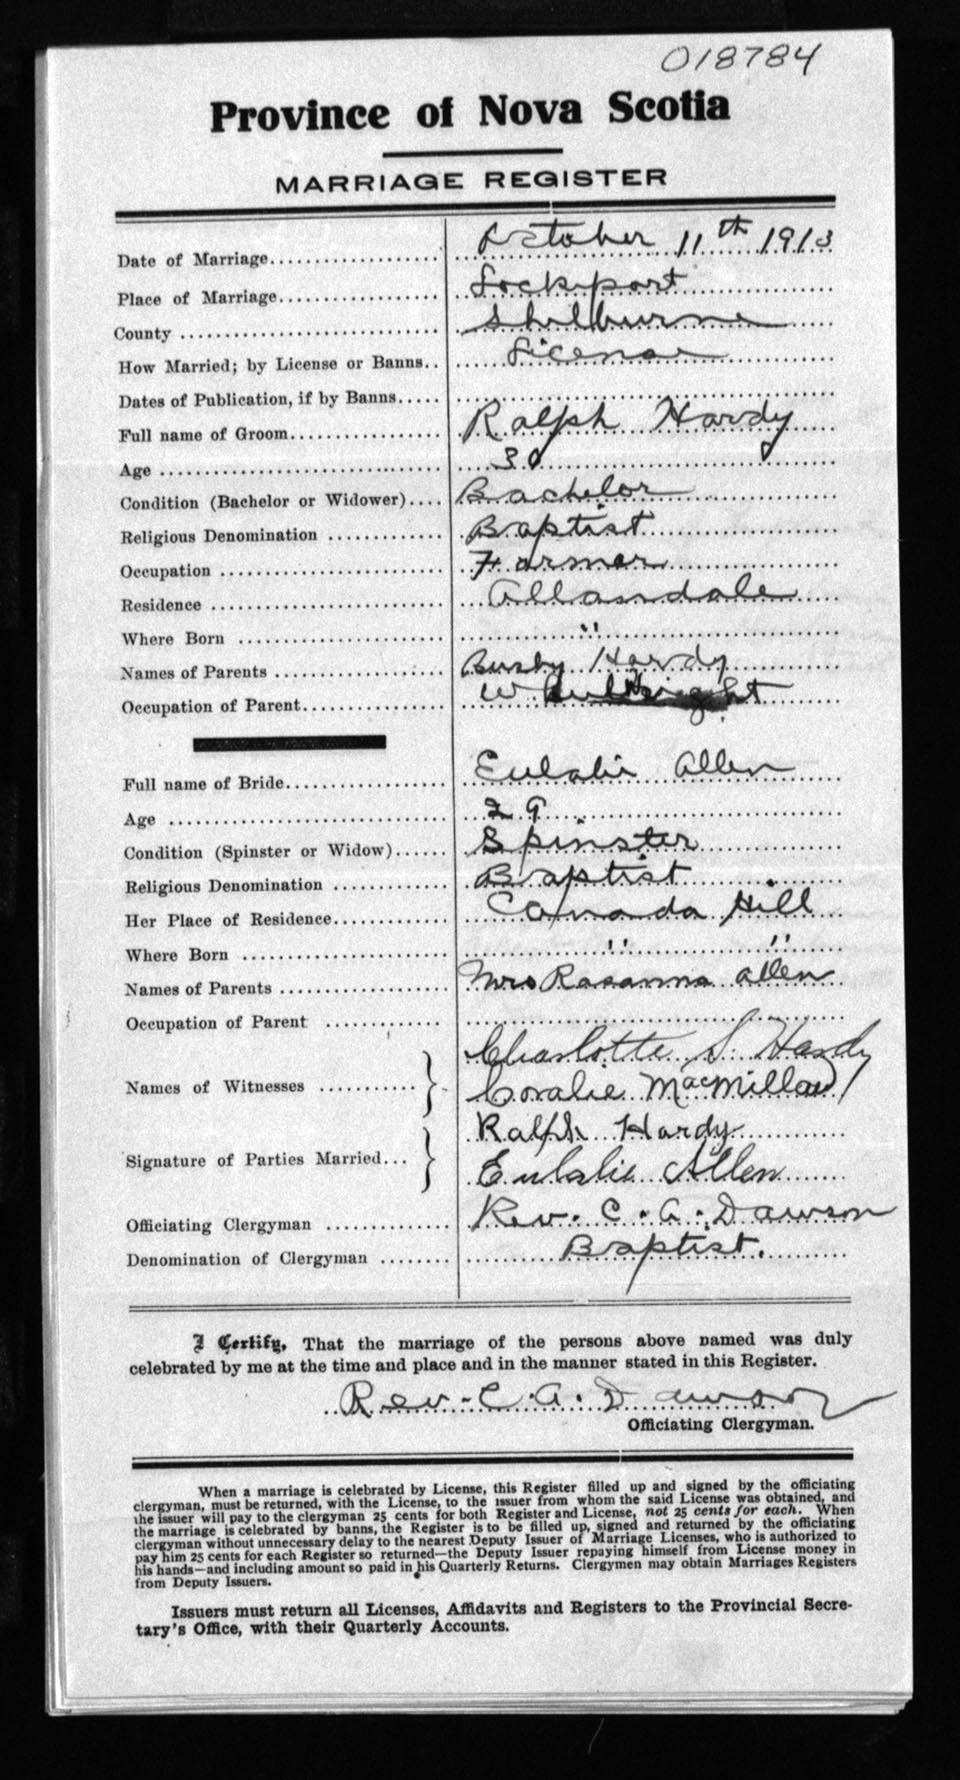 018784
Province of Nova Scotia
MARRIAGE REGISTER
Date of Marriage.................. October 11th 1913
Place of Marriage................. Lockeport
County ........................... Shelburne
How Married; by License or Banns.. License
Dates of Publication, if by Banns.....
Full name of Groom................ Ralph Hardy
Age .............................. 30
Condition (Bachelor or Widower).... Bachelor
Religious Denomination ............ Baptist
Occupation ....................... Farmer
Residence ........................ Allandale
Where Born ....................... "
Names of Parents ................. Hardy
Occupation of Parent..............
Full name of Bride................ Eulalie Allen
Age .............................. 29
Condition (Spinster or Widow)...... Spinster
Religious Denomination ............ Baptist
Her Place of Residence............ Canada Hill
Where Born ....................... " "
Names of Parents ................. Mrs Rosanna Allen
Occupation of Parent .............
Charlotte S. Hardy
Names of Witnesses .......... } Coralie MacMillan
Ralph Hardy
Signature of Parties Married... } Eulalie Allen
Officiating Clergyman ............ Rev. C. A. Dawson
Denomination of Clergyman ........ Baptist.
I Certify, That the marriage of the persons above named was duly
celebrated by me at the time and place and in the manner stated in this Register.
Rev. C. A. Dawson
Officiating Clergyman.
When a marriage is celebrated by License, this Register filled up and signed by the officiating
clergyman, must be returned, with the License, to the issuer from whom the said License was obtained, and
the issuer will pay to the clergyman 25 cents for both Register and License, not 25 cents for each. When
the marriage is celebrated by banns, the Register is to be filled up, signed and returned by the officiating
clergyman without unnecessary delay to the nearest Deputy Issuer of Marriage Licenses, who is authorized to
pay him 25 cents for each Register so returned—the Deputy Issuer repaying himself from License money in
his hands—and including amount so paid in his Quarterly Returns. Clergymen may obtain Marriages Registers
from Deputy Issuers.
Issuers must return all Licenses, Affidavits and Registers to the Provincial Secre-
tary's Office, with their Quarterly Accounts.